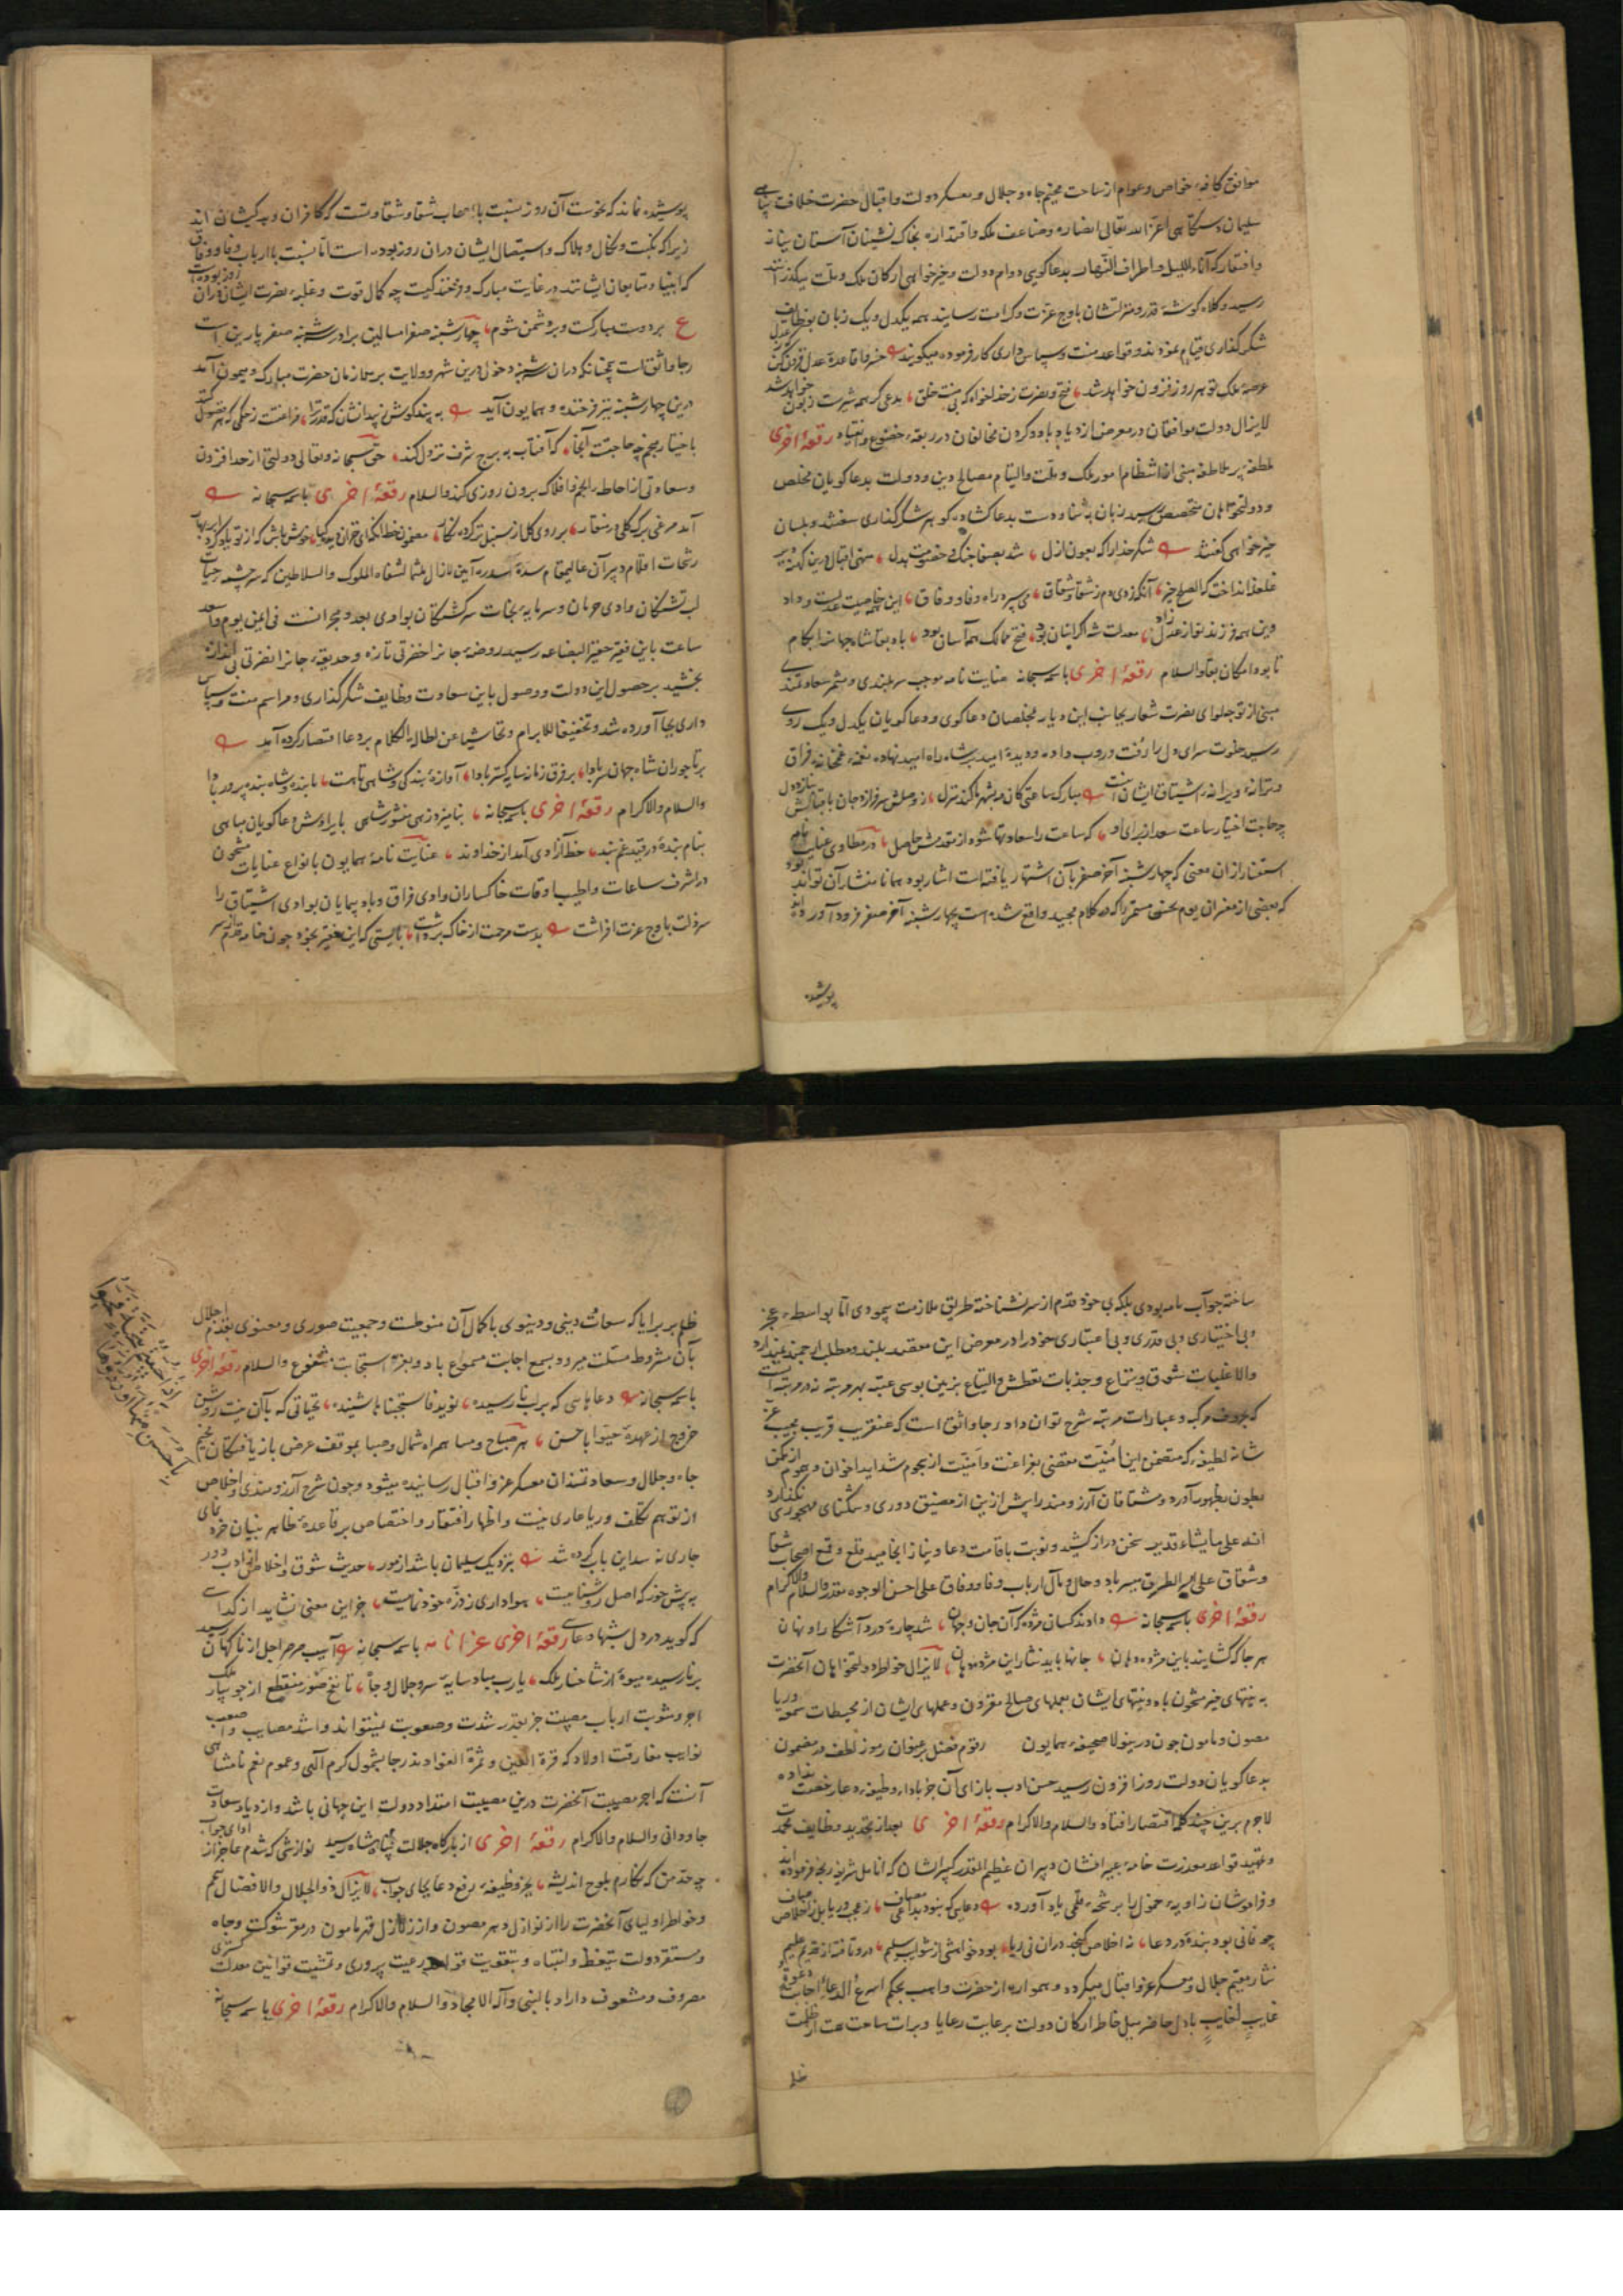 موافق کافهٔ خواص و عوام از ساحت مخیم جاه و جلال و معسکر دولت و اقبال حضرت خلافت پناهی
سلیمان مکانی اعز الله تعالی انصاره و ضاعف ملکه و اقتداره بخاک نشینان آستان نیاز
و افتقار که آناء اللیل و اطراف النهار بدعاگویی دوام دولت و خیرخواهی ارکان ملک و ملت میگذرانند
رسید و کلاه گوشهٔ قدر و منزلتشان باوج عزت و کرامت رسانید همه یکدل و یک زبان بوظایف
شکرگذاری قیام نمودند و قواعد منت و سپاس داری کار فرموده میگویند خسروا قاعدهٔ عدل فزون کن
عرصهٔ ملک تو هر روز فزون خواهد شد فتح و نصرت ز خدا خواه که بی منت خلق مدعی گر همه شیرست زبون خواهد شد
لایزال دولت موافقان در معرض ازدیاد باد و گردن مخالفان در ربقهٔ خضوع و انقیاد رقعهٔ اخری
ملطفهٔ پر ملاطفه مبنی از انتظام امور ملک و ملت و التیام مصالح دین و دولت بدعاگویان مخلص
و دولتخواهان متخصص رسید زبان بثنا و دست بدعا گشاده گوهر شکرگذاری سفتند و بلسان
خیرخواهی گفتند شکر خدا را که بعون ازل شد بصفا جنگ و خصومت بدل منهی اقبال درین کهنه دیر
غلغله انداخت که الصلح خیر آنکه زدی دم ز شقا و شقاق می سپرد راه وفا و وفاق این خاصیت عدلست و داد
وین همه فرزند نو از عدل زاد معدلت شه اگر اینسان بود فتح ممالک همه آسان بود باد بقا شاه جهان را بکام
تا بود امکان بقا والسلام رقعهٔ اخری باسمه سبحانه عنایت نامهٔ موجب سربلندی و مثمر سعادتمندی
مبنی از توجه لوای نصرت شعار بجانب این دیار بمخلصان دعاگوی و دعاگویان یکدل و یک روی
رسید خلوت سرای دل را رُفت و روب داده و دیدهٔ امید بر شاه راه امید نهاده نغمهٔ غمخانهٔ فراق
و ترانهٔ ویرانهٔ اشتیاق ایشان اینست مبارک ساعتی کان مه بشهر ما کند منزل ز وصلش سرفرازد جان باقبالش بنازد دل
چه حاجت اختیار ساعت سعد از برای او که ساعت را سعادتها شود از مقدمش حاصل در مطاوی عنایت نامه
استفسار از ان معنی که چهارشنبهٔ آخر صفر بآن اشتهار یافته است اشارت بود همانا منشا آن تواند بود
که بعضی از مفسران یوم نحس مستمر را که در کلام مجید واقع شده است بچهارشنبهٔ آخر صفر فرود آورده اند
پوشیده
پوشیده نماند که نحوست آن روز نسبت با اصحاب شقا و شقاوتست که کافران و بدکیشان اند
زیرا که نکبت و نکال و هلاک و استیصال ایشان دران روز بوده است اما نسبت با ارباب وفا و وفاق
که انبیا و متابعان ایشانند در غایت مبارک و فرخندگیست چه کمال قوت و غلبهٔ نصرت ایشان دران روز بوده است
ع بر دوست مبارکست و بر دشمن شوم چهارشنبه صفر امسالین برادر شنبه صفر پارین است
رجا واثق است همچنانکه دران شنبه دخول درین شهر و ولایت بر ملازمان حضرت مبارک و میمون آمد
درین چهارشنبه نیز فرخنده و همایون آید به پند گوش نه ای دانشان که قدرتها فراغتست ز حکمی که
باختیار منجم چه حاجتست آنجا که آفتاب به برج شرف نزول کند حق سبحانه و تعالی دولتی از حد افزون
و سعادتی از احاطهٔ انجم و افلاک برون روزی کند والسلام رقعهٔ اخری باسمه سبحانه
آمد مرغی برگ گلی در منقار بر روی گل از سنبل تر کرده نگار مضمون خط آنکه ای خزان دیده گیاه خوش باش که از تو یاد کرد ابر بهار
رشحات اقلام دبیران عالیمقام سدهٔ سدره آیین لازال ملثما لشفاه الملوک والسلاطین که سرچشمهٔ حیات
لب تشنگان وادی حرمان و سرمایهٔ نجات سرگشتگان بوادی بعد و هجرانست فی ایمن یوم و اسعد
ساعت باین فقیر حقیر البضاعه رسید روضهٔ جانرا خضرتی تازه و حدیقهٔ جانرا نضرتی بی اندازه
بخشید بر حصول این دولت و وصول باین سعادت وظایف شکرگذاری و مراسم منت و سپاس
داری بجا آورده شد و تخفیفا للابرام و تحاشیا عن اطالة الکلام بر دعا اقتصار کرده آمد
بر تاجوران شاه جهان سر بادا بر فرق زمانه سایه گستر بادا آوازهٔ بندگی و شاهی تا هست ما بنده و شاه بنده پرور بادا
والسلام والاکرام رقعهٔ اخری باسمه سبحانه بنامیزد زهی منشور شاهی بایراد عاگویان مباهی
بنام بندهٔ در قید غم بند خط آزادی آمد از خداوند عنایت نامهٔ همایون بانواع عنایات مشحون
در اشرف ساعات و اطیب اوقات خاکساران وادی فراق و باد پیمایان بوادی اشتیاق را
سر ذلت باوج عزت افراشت بدست مرحمت از خاک برداشت بایستی که این فقیر بخود چون خامه قدم از سر
ساخته جواب نامه بودی بلکه بی خود قدم از سر نشناخته طریق ملازمت پیمودی اما بواسطهٔ عجز
و بی اختیاری و بی قدری و بی اعتباری خود را در معرض این مقصد بلند و مطلب ارجمند نمی آرد
والا غلبات شوق و نزاع و جذبات تعطش و التیاع بزمین بوسی عتبهٔ بهر مرتبه نه در مرتبه ایست
که بحروف مرکبه و عبارات مرتبه شرح توان داد و رجا واثق است که عنقریب قریب مجیب عز
شانه لطیفهٔ که متضمن این امنیت مقتضی بفراغت و امنیت از هجوم شداید اخوان و هموم از مکمن
بطون بظهور آورد و مشتاقان آرزومند را پیش ازین از مضیق دوری و تنگنای مهجوری نگذارد
انه علی ما یشاء قدیر سخن دراز کشید و نوبت باقامت دعا و نیاز انجامید قلع و قمع اصحاب شقا
و شقاق علی ایسر الطرق میسر باد و حال و مآل ارباب وفا و وفاق علی احسن الوجوه مقدر والسلام والاکرام
رقعهٔ اخری باسمه سبحانه دادند کسان مژده که آن جان و جهان شد چارهٔ درد آشکارا و نهان
هر جا که گشایند باین مژده دهان جانها باید نثار این مژده دهان لایزال خواطر دولتخواهان آنحضرت
به نیتهای خیر مشحون باد و نیتهای ایشان بعملهای صالح مقرون و عملهای ایشان از محیطات سمعه و ریا
مصون و مامون چون درینولا صحیفهٔ همایون رقوم فضل بر عنوان رموز لطف در مضمون
بدعاگویان دولت روز افزون رسید حسن ادب بازای آن جز باداء وظیفهٔ دعا رخصت نداد
لاجرم برین چند کلمه اقتصار افتاد والسلام والاکرام رقعهٔ اخری بعد از تجدید وظایف محمدت
و تمهید قواعد معذرت خامهٔ عبیر افشان دبیران عظیم القدر کبیر الشان که انامل شریفه رنجه فرموده اند
و فراموشان زاویهٔ خمول را برشحهٔ قلمی یاد آورده دعایی که بنود بداعی مضاف ز عجب و ریا بل ز اخلاص صاف
چو فانی بود بندهٔ در دعا نه اخلاص گنجد دران نی ریا بود خواهشی از شوایب سلیم درو تافته از قدیم علیم
نثار مقیم جلال و معسکر عز و اقبال میگردد و همواره از حضرت واهب بحکم اسرع الدعاء اجابة دعوة
غایبٍ لغایبٍ بادل حاضر میل خاطر ارکان دولت برعایت رعایا و براءت ساحت همت از ظلمت
ظلم
ظلم بر برایا که سعادت دینی و دنیوی با کمال آن منوطست و جمعیت صوری و معنوی بعدم اخلال
بآن مشروط مسئلت میرود بسمع اجابت مسموع باد و بعزّ استجابت مشفوع والسلام رقعهٔ اخری
باسمه سبحانه دعاهایی که بر لب نارسیده نوید فاستجبنا ها شنیده تحیاتی که بآن نیت روشن
خروج از عهدهٔ حیّوا باحسن هر صباح و مسا همراه شمال و صبا بموقف عرض باریافتگان مخیم
جاه و جلال و سعادتمندان معسکر عز و اقبال رسانیده میشود و چون شرح آرزومندی و اخلاص
از توهم تکلف و ریا عاری نیست و اظهار افتقار و اختصاص بر قاعدهٔ ظاهر بنیان خرد نمای
جاری نه سد این باب کرده شد بنزدیک سلیمان باشد از مور حدیث شوق و اخلاص از ادب دور
به پیش خور که اصل روشناییست هواداری ز ذره خودنماییست جز این معنی نشاید از گدایی
که گوید در دل شبها دعایی رقعهٔ اخری عزانامه باسمه سبحانه آسیب مرم اجل از ناگهان رسید
بر نارسیده میوهٔ از شاخسار ملک یا رب مباد سایهٔ سرو جلال و جاه تا نفخ صور منقطع از جویبار ملک
اجر و مثوبت ارباب مصیبت جز بقدر شدت و صعوبت نمیتواند و اشد مصایب و اصعب
نوایب مفارقت اولاد که قرة العین و ثمرة الفؤادند رجا بشمول کرم الهی و عموم نعم نامتناهی
آنست که اجر مصیبت آنحضرت درین مصیبت امتداد دولت این جهانی باشد و ازدیاد سعادت
جاودانی والسلام والاکرام رقعهٔ اخری از بارگاه جلالت پناه شاه رسید نوازشی که شدم عاجز از ادای جواب
چه حد من که نگارم بلوح اندیشه بجز وظیفهٔ رفع دعا بجای جواب لایزال ذو الجلال والافضال
و خواطر اولیای آنحضرت را از نوازل دهر مصون و از زلازل قهر مامون در مقر شوکت و جاه
و مستقر دولت تیقظ و انتباه و بتقویت قواعد رعیت پروری و تمشیت قوانین معدلت گستری
مصروف و مشعوف داراد بالنبی وآله الامجاد والسلام والاکرام رقعهٔ اخری باسمه سبحانه